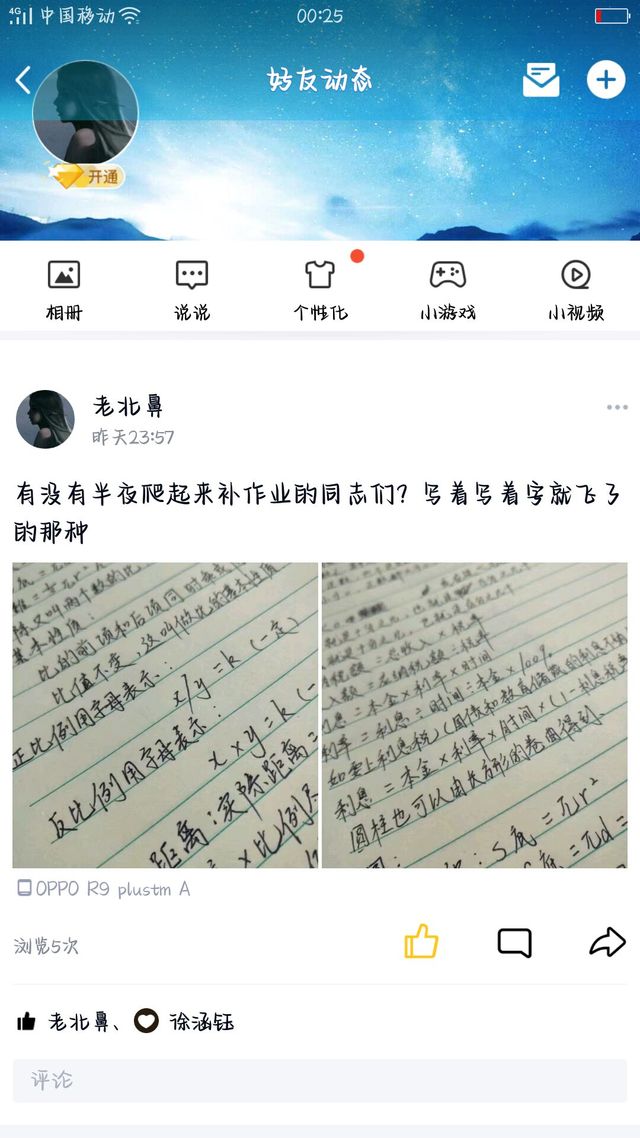 4G 中国移动
00:25
好友动态
开通
相册
说说
个性化
小游戏
小视频
老北鼻
昨天23:57
有没有半夜爬起来补作业的同志们？写着写着字就飞了
的那种
又叫两个数的比
基本性质：
比的前项和后项同时乘或
比值不变，这叫做比的基本性质
正比例用字母表示：
x/y=k(一定)
反比例用字母表示：
x×y=k(一
距离：实际距离=
×比例尺
利息=本金×利率×时间
利率=利息÷时间÷本金×100%
如要上利息税(国债和教育储蓄的利息不纳
利息=本金×利率×时间×(1-利息税率
圆柱也可以由长方形的卷曲得到
S底=πr²
=πd=
OPPO R9 plustm A
浏览5次
老北鼻、
徐涵钰
评论